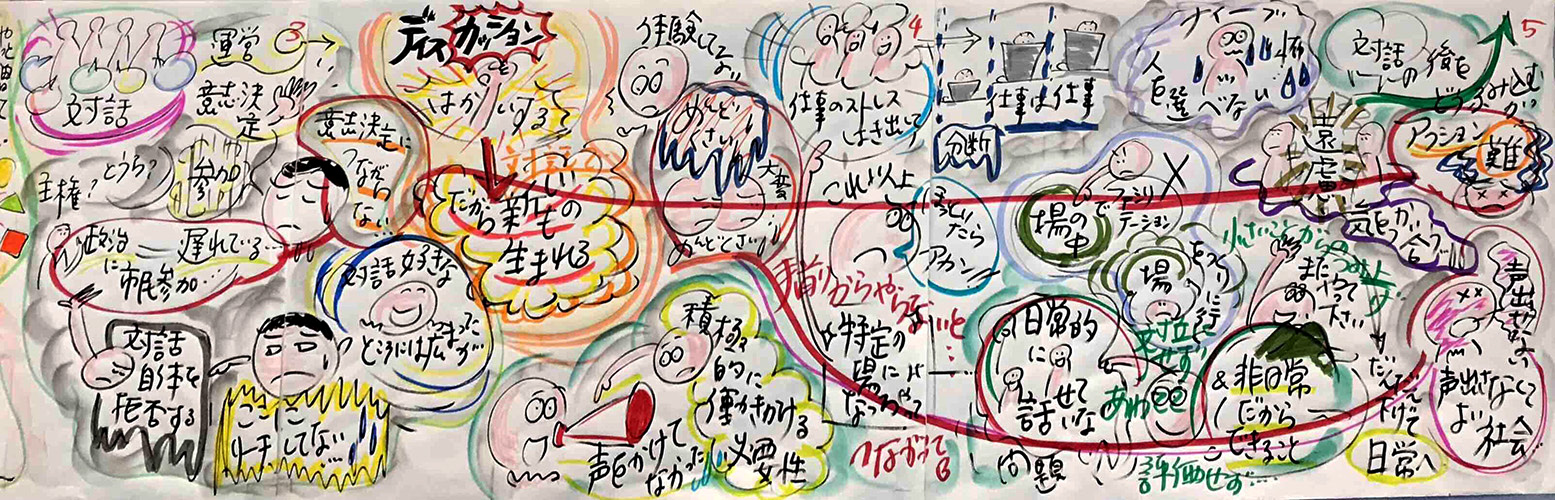 対話
運営
3
意志決定
参加
主権?
とうち?
政治に市民参加…
遅れている…
対話
自体を
拒否する
ここに
リーチしてない…
意志決定に
つながら
ない…
対話好きな
ところには広まるが
ディスカッション
はかいするて
対話で
だから新しいもの
生まれる
体験してない
めんどくさい
大事
めんどくさい
声をかけて
なかった
積極
的に
働きかける
必要性
4
仕事のストレス
はき出して
これ以上
アカン
手前からやらないと…
特定の
場に
なっちゃって
つながってる
仕事は仕事
分断
場の
中
で
ファシリ
テーション
場
をつくりに行く
対立
せず
日常的
に
話せていない
問題
あわせ
評価せず…
ナイーブ
人を選べない
怖い
対話の
後を
どうふみ込むか
5
遠慮
アクション
難
気をつかい合う
小さいことからのつみ上げ
また
やって
下さい
非日常
&
だから
できること
だんだん
下げて
日常へ
声出せない
声出さなくて
よい
社会